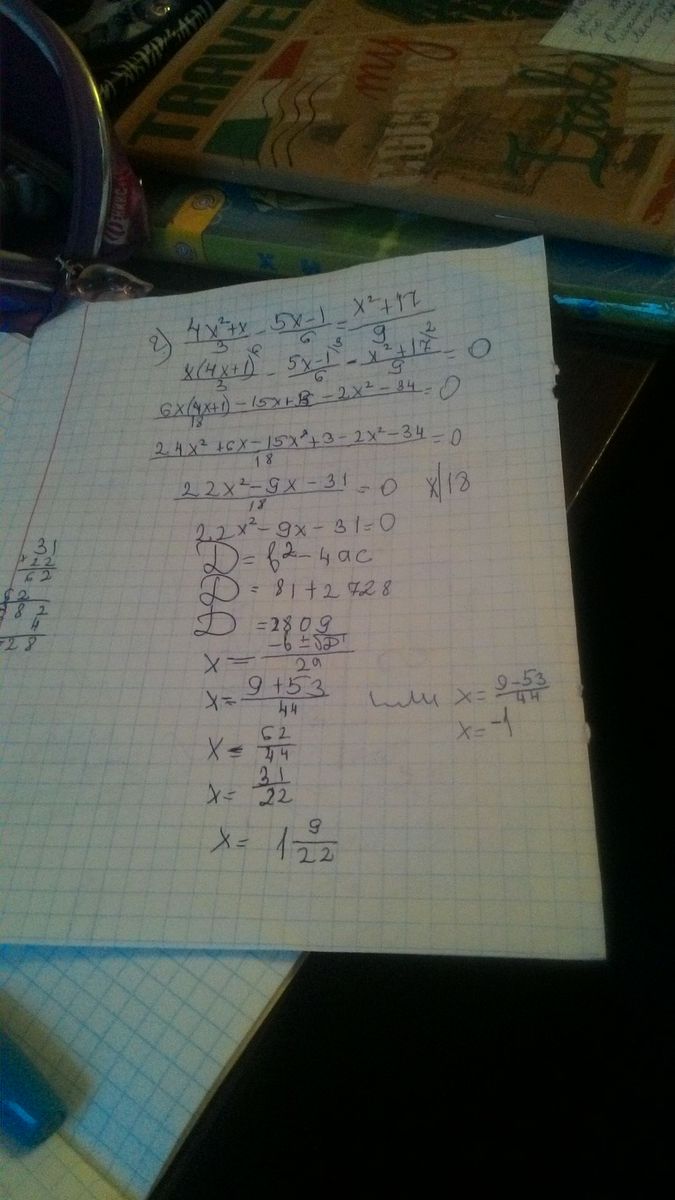 TRAVEL
my
Italy
г) (4x²+x)/3 - (5x-1)/6 = (x²+17)/9
x(4x+1)⁶/3 - 5x-1³/6 - x²+17²/9 = 0
(6x(4x+1) - 15x+3 - 2x² - 34)/18 = 0
(24x² + 6x - 15x + 3 - 2x² - 34)/18 = 0
(22x² - 9x - 31)/18 = 0 x|18
22x² - 9x - 31 = 0
D = b² - 4ac
D = 81 + 2728
D = 2809
x = (-b ± √D)/2a
x = (9 + 53)/44 или x = (9-53)/44
x = 62/44 x = -1
x = 31/22
x = 1 9/22
31
22
62
62
682
4
28